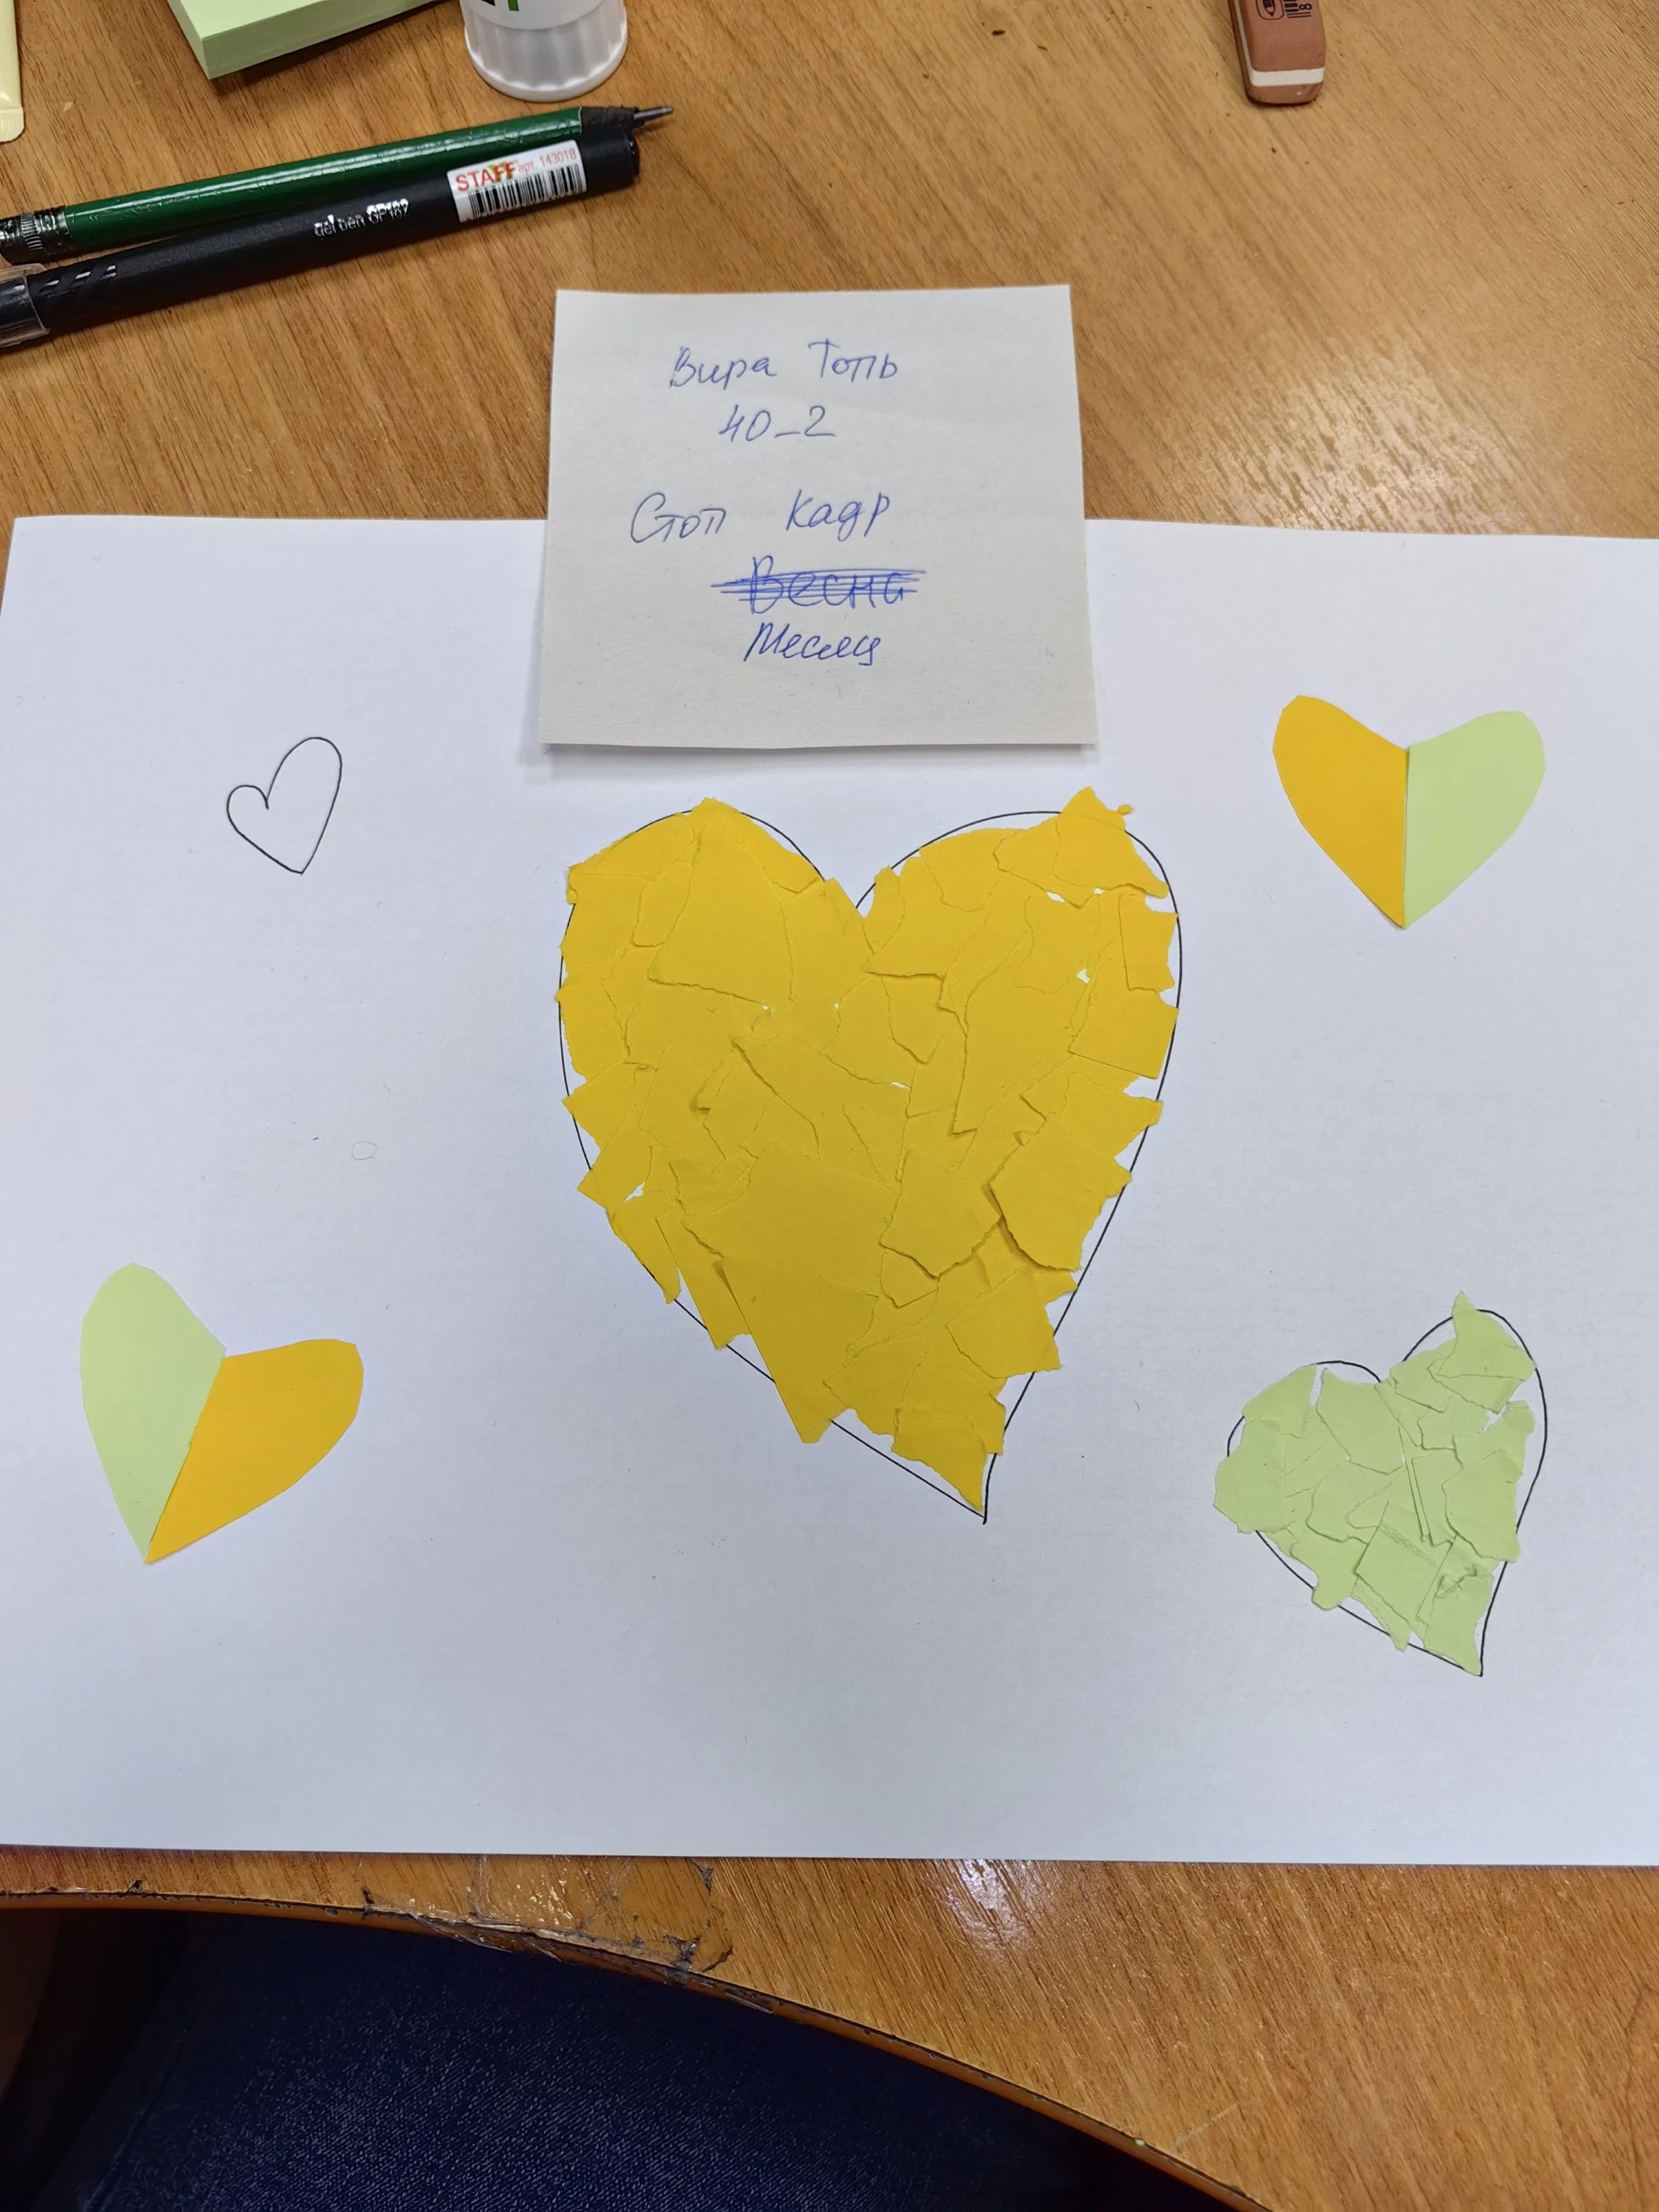 STAFF арт. 143018
gel pen GP187
Вира Топь
40_2
Стоп кадр
Весна
Месяц